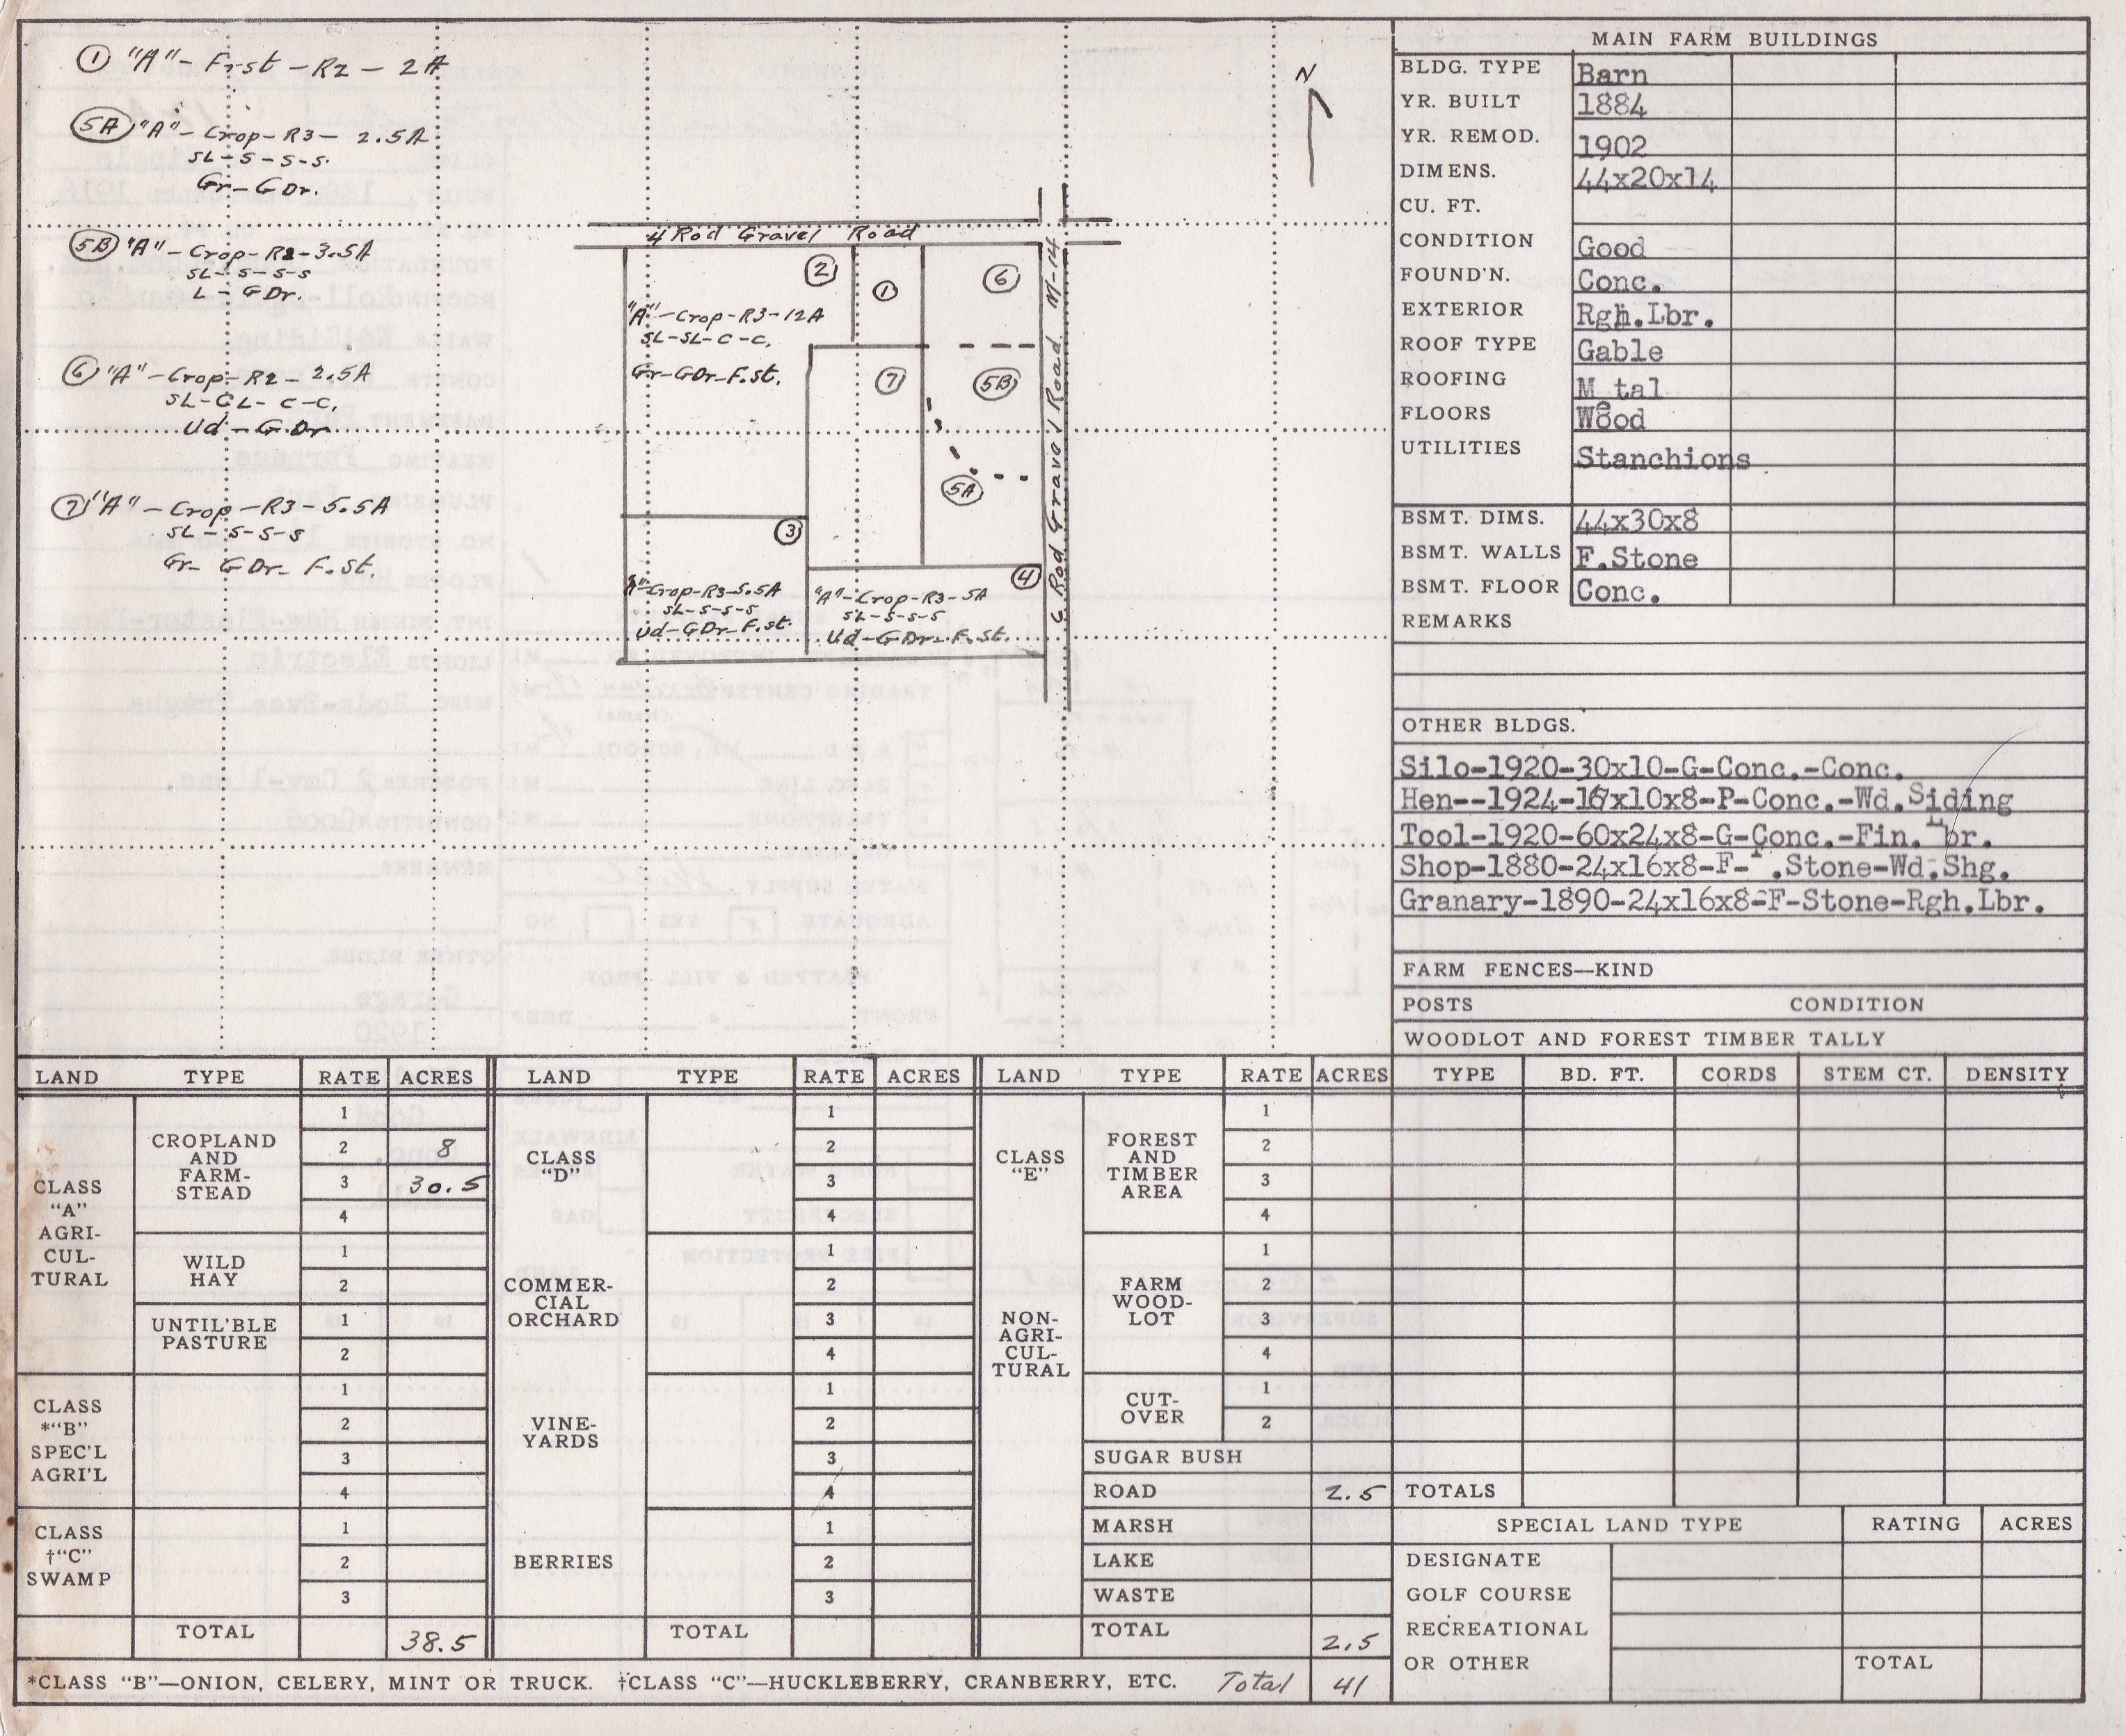 ① "A"-Frst-R2-2A
5A "A"-Crop-R3-2.5A
SL-S-S-S.
Gr-GDr.
5B "A"-Crop-R2-3.5A
SL-S-S-S
L-GDr.
⑥ "A"-Crop-R2-2.5A
SL-CL-C-C,
Ud-G.Dr
⑦ "A"-Crop-R3-5.5A
SL-S-S-S
Gr-GDr-F.st,
N
4 Rod Gravel Road
②
①
⑥
"A"-Crop-R3-12A
SL-SL-C-C,
Gr-GDr-F.st.
⑦
5B
5A
③
"A"-Crop-R3-5.5A
SL-S-S-S
Ud-GDr-F.st.
④
"A"-Crop-R3-5A
SL-S-S-S
Ud-GDr-F.st.
Rod Gravel Road M-14
MAIN FARM BUILDINGS
BLDG. TYPE Barn
YR. BUILT 1884
YR. REMOD. 1902
DIMENS. 44x20x14
CU. FT.
CONDITION Good
FOUND'N. Conc.
EXTERIOR Rgh.Lbr.
ROOF TYPE Gable
ROOFING Metal
FLOORS Wood
UTILITIES Stanchions
BSMT. DIMS. 44x30x8
BSMT. WALLS F.Stone
BSMT. FLOOR Conc.
REMARKS
OTHER BLDGS.
Silo-1920-30x10-G-Conc.-Conc.
Hen--1924-16x10x8-P-Conc.-Wd.Siding
Tool-1920-60x24x8-G-Conc.-Fin. Lbr.
Shop-1880-24x16x8-F- .Stone-Wd.Shg.
Granary-1890-24x16x8-F-Stone-Rgh.Lbr.
FARM FENCES—KIND
POSTS CONDITION
WOODLOT AND FOREST TIMBER TALLY
TYPE BD. FT. CORDS STEM CT. DENSITY
TOTALS
SPECIAL LAND TYPE RATING ACRES
DESIGNATE
GOLF COURSE
RECREATIONAL
OR OTHER TOTAL
LAND TYPE RATE ACRES
CLASS
"A"
AGRI-
CUL-
TURAL
CROPLAND
AND
FARM-
STEAD
1
2 8
3 30.5
4
WILD
HAY
1
2
UNTIL'BLE
PASTURE
1
2
CLASS
*"B"
SPEC'L
AGRI'L
1
2
3
4
CLASS
†"C"
SWAMP
1
2
3
TOTAL 38.5
LAND TYPE RATE ACRES
CLASS
"D"
1
2
3
4
COMMER-
CIAL
ORCHARD
1
2
3
4
VINE-
YARDS
1
2
3
4
BERRIES
1
2
3
TOTAL
LAND TYPE RATE ACRES
CLASS
"E"
NON-
AGRI-
CUL-
TURAL
FOREST
AND
TIMBER
AREA
1
2
3
4
FARM
WOOD-
LOT
1
2
3
4
CUT-
OVER
1
2
SUGAR BUSH
ROAD 2.5
MARSH
LAKE
WASTE
TOTAL 2.5
*CLASS "B"—ONION, CELERY, MINT OR TRUCK. †CLASS "C"—HUCKLEBERRY, CRANBERRY, ETC. Total 41